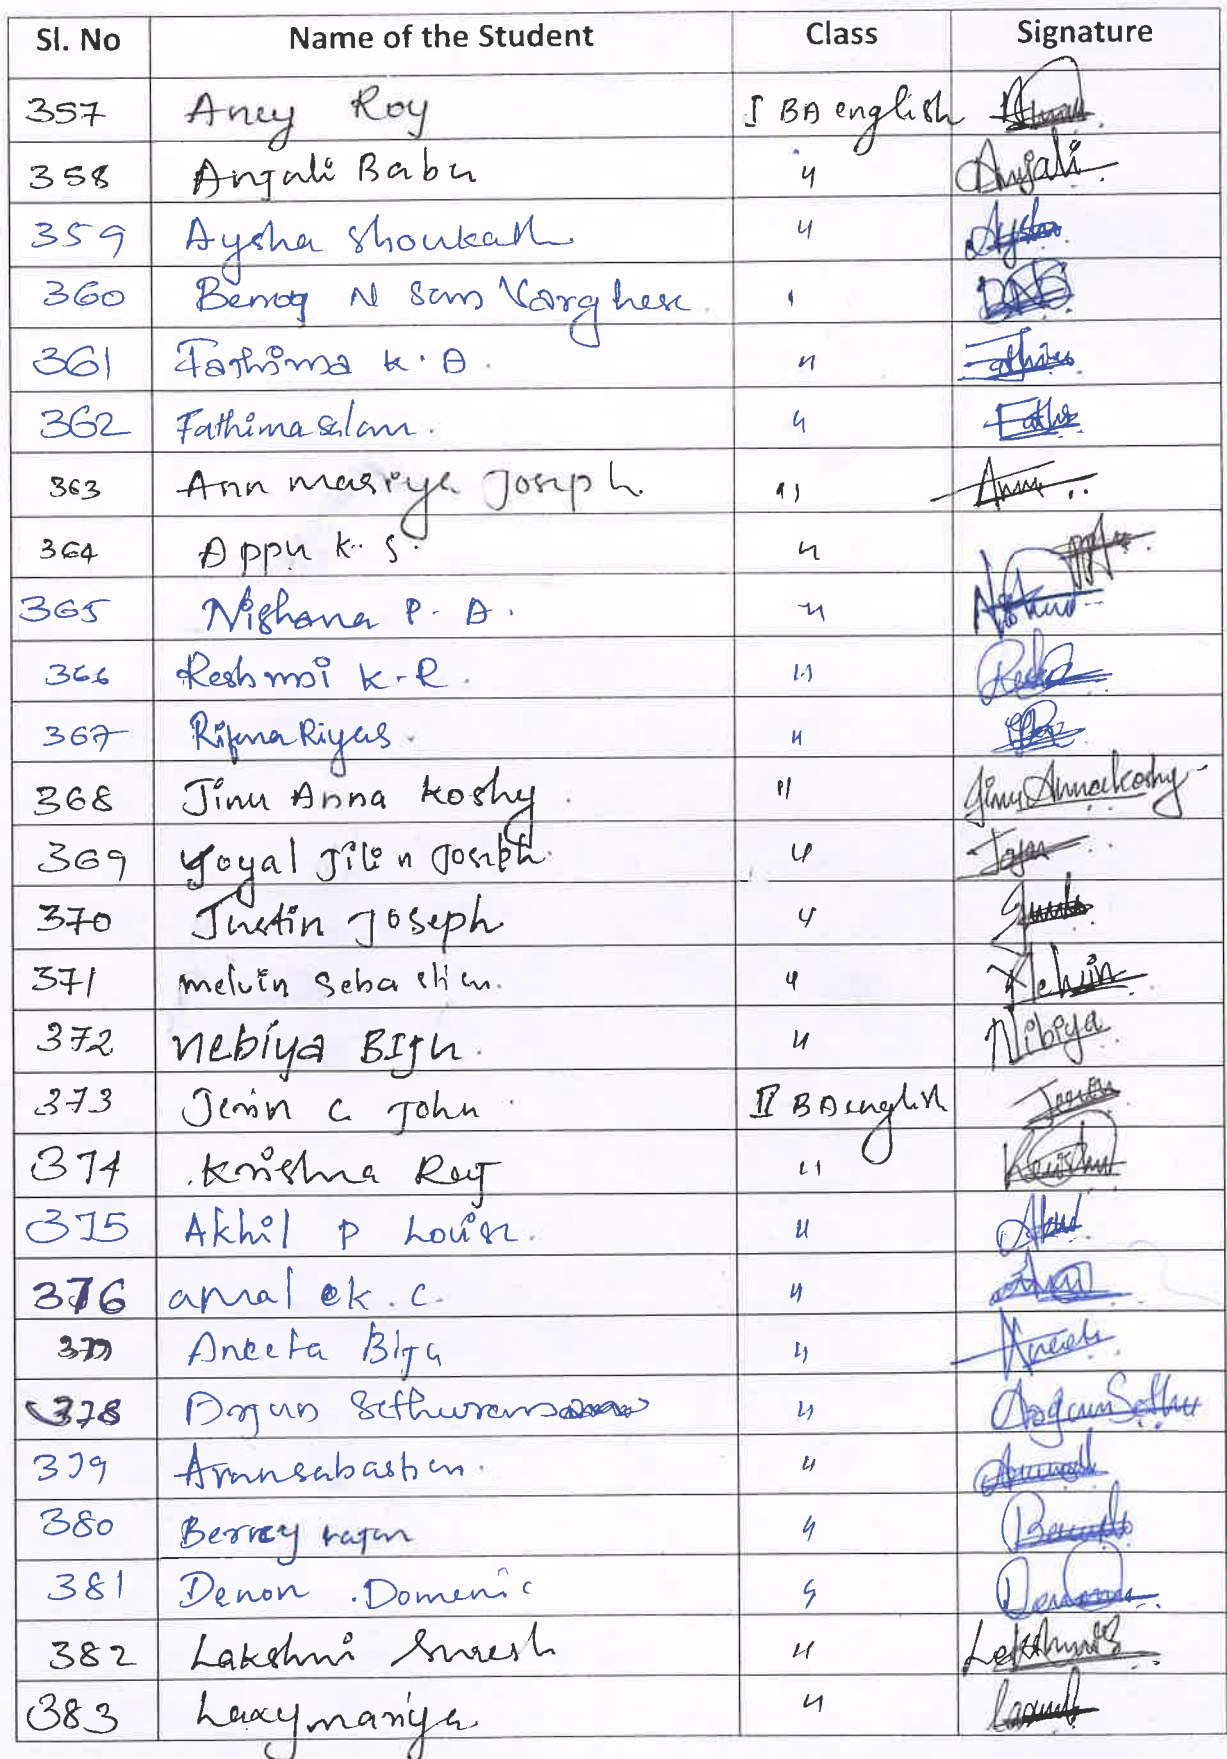 Sl. No Name of the Student Class Signature
357 Aney Roy I BA english
358 Anjali Babu " Anjali
359 Aysha Shoukath "
360 N Sam Varghese "
361 Fathima K. A. "
362 Fathima salam. "
363 Ann mariya Joseph "
364 Appu K. S. "
365 Nishana P. A. "
366 Reshmi K. R. "
367 Rifma Riyas. "
368 Jinu Anna Koshy. " Jinu Anna Koshy
369 Yoyal Jilin Joseph. "
370 Justin Joseph "
371 melvin Sebastian. " Melvin
372 Nebiya BIJU. " Nibiya
373 Jerin C John II BA english
374 Krishna Roy "
375 Akhil P Louise. "
376 amal ek. C. "
377 Aneeta Biju "
378 Arjun "
379 "
380 rajan "
381 Denon .Domenic "
382 Lakshmi Suresh "
383 Laxymariya "